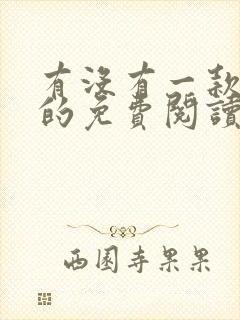 有沒有一款
的免費閱讀
西園寺果果